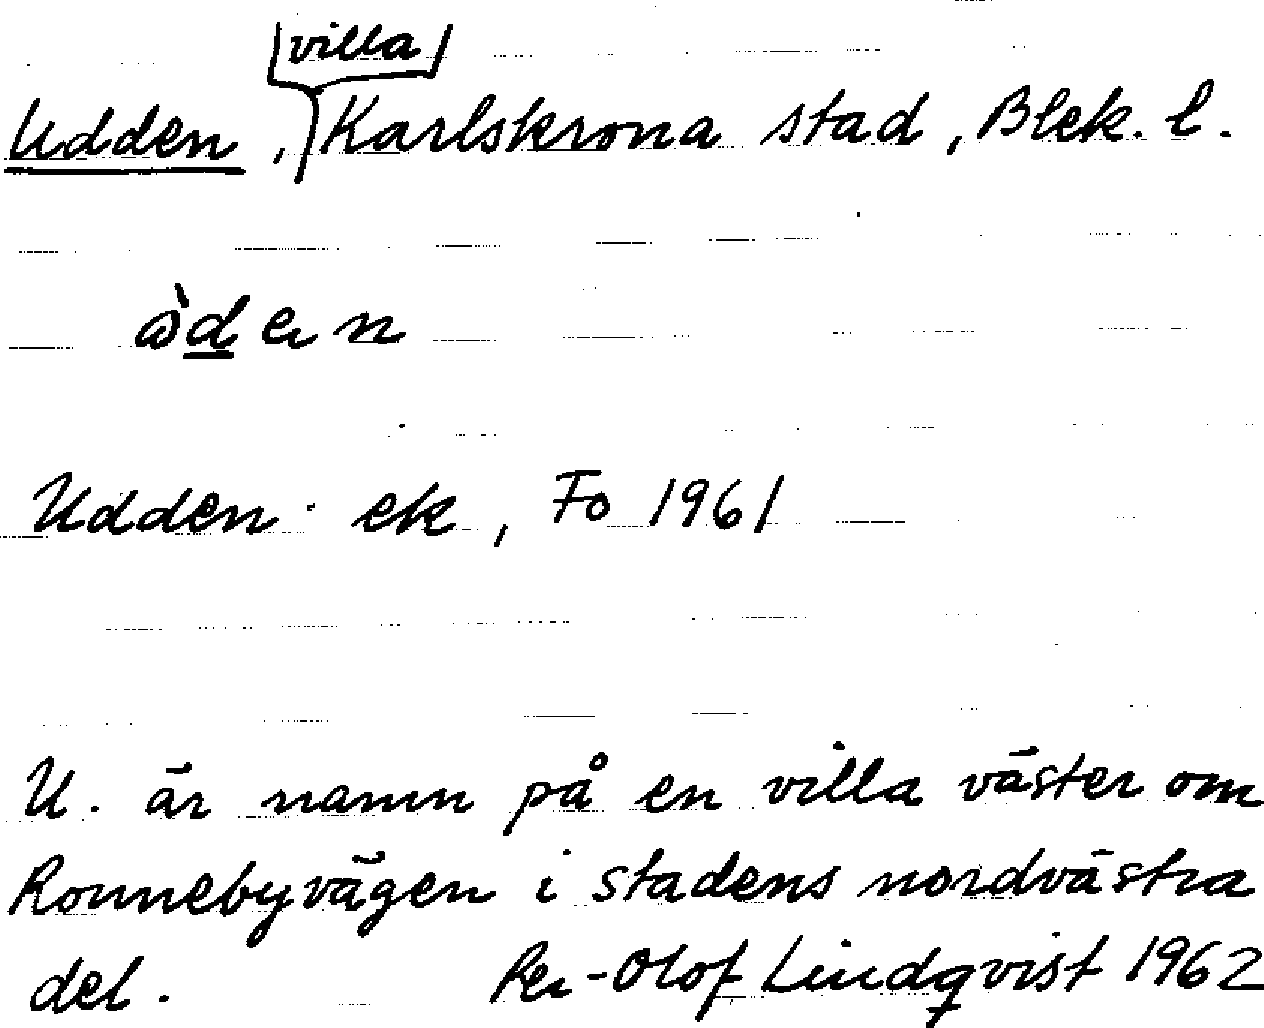 Udden, [villa] Karlskrona stad, Blek. l.
ꜷ̀den
Udden ek, Fo 1961
U. är namn på en villa väster om
Ronnebyvägen i stadens nordvästra
del. Per-Olof Lindqvist 1962